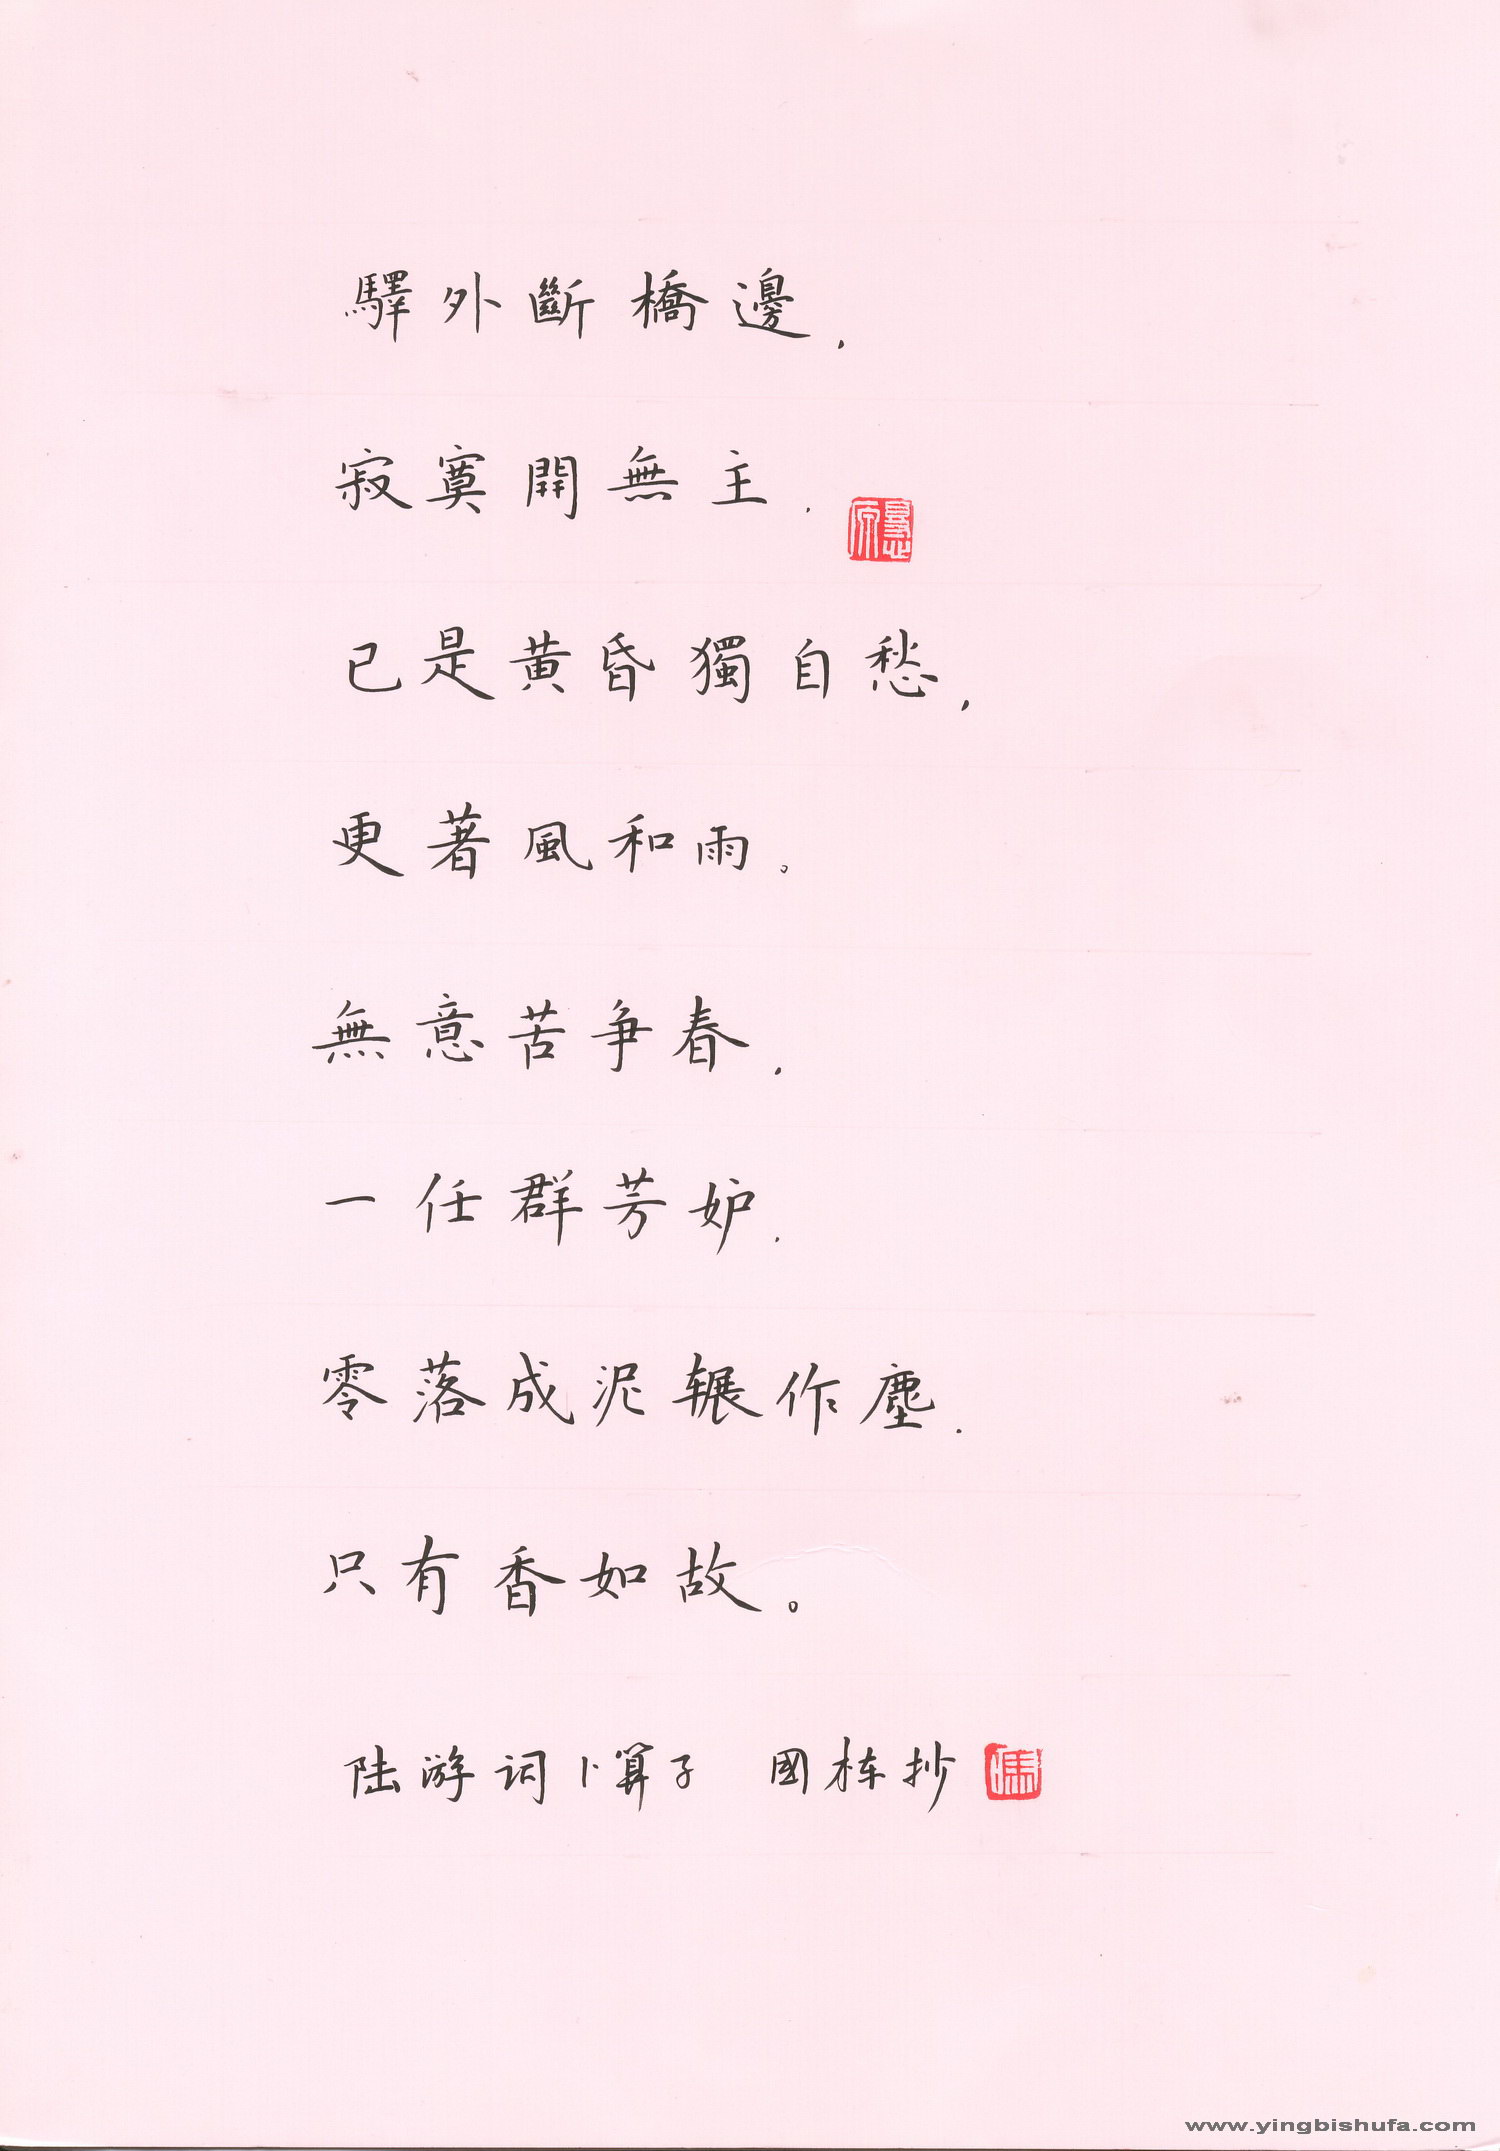 驛外斷橋邊，
寂寞開無主．
已是黄昏獨自愁，
更著風和雨。
無意苦争春，
一任群芳妒．
零落成泥辗作塵．
只有香如故。
陆游词卜算子 國栋抄
www.yingbishufa.com